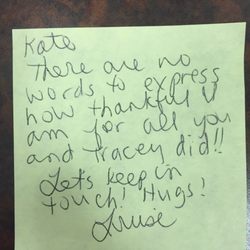 Kate
There are no
words to express
how thankful I
am for all you
and Tracey did!!
Let's keep in
touch! Hugs!